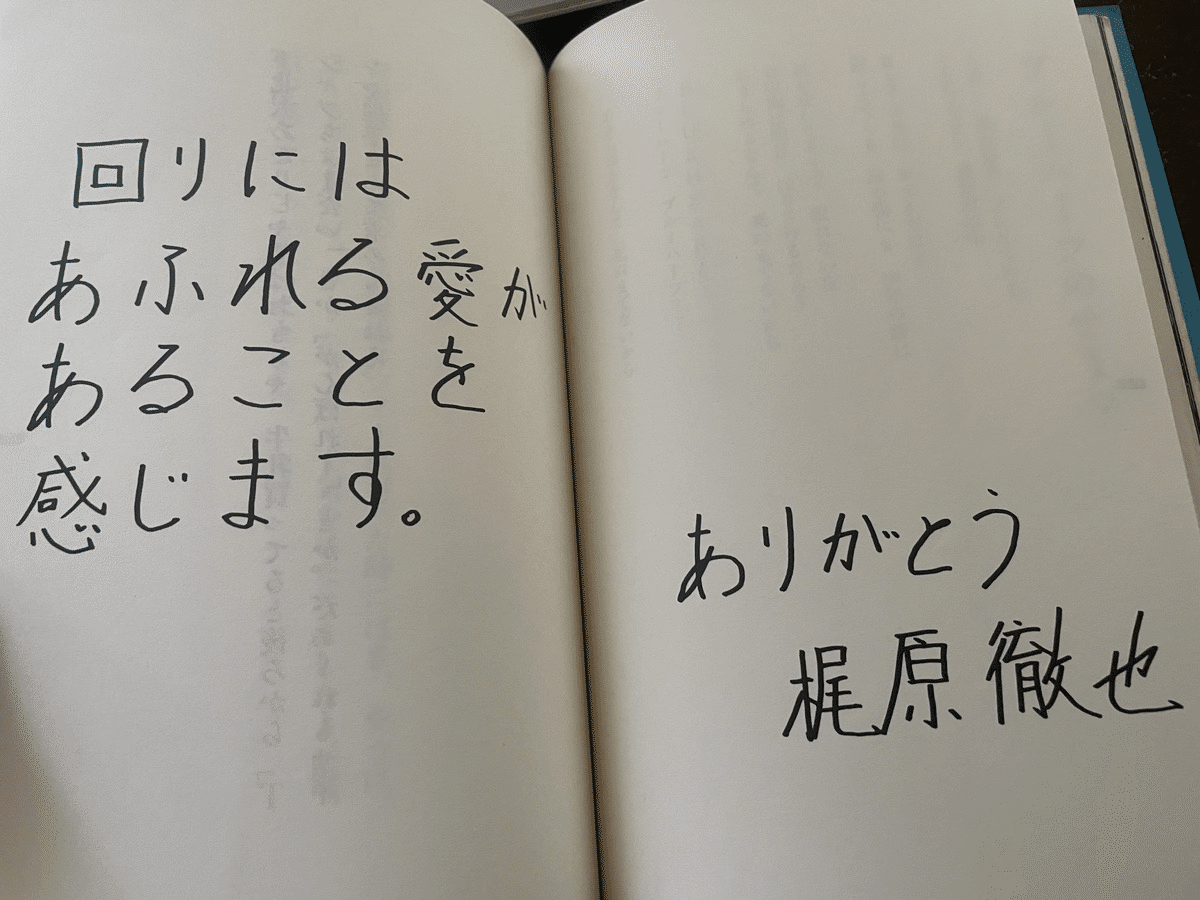 回りには
あふれる愛が
あることを
感じます。
ありがとう
梶原徹也